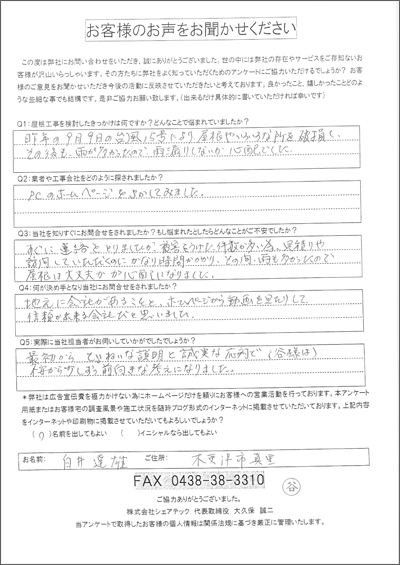 お客様のお声をお聞かせください
この度は弊社にお問い合わせをいただき、誠にありがとうございました。世の中には弊社の存在やサービスをご存知ないお
客様が沢山いらっしゃいます。その方たちに弊社をよく知っていただくためのアンケートにご協力いただけるでしょうか？ お客
様のご意見をお聞かせいただき今後の活動に反映させていただきたいと考えております。良かったこと、嬉しかったことどのよ
うな些細な事でも結構です。是非ご協力お願い致します。(出来るだけ具体的に書いていただければ幸いです)
Q1:屋根工事を検討したきっかけは何ですか？どんなことで悩まれていましたか？
昨年の9月9日の台風15号により、屋根やいろいろな所を破損し、
その後も、雨が多かったので、雨漏りしないか心配でした。
Q2:業者や工事会社をどのように探されましたか？
PCのホームページをさがしてみました。
Q3:当社を知りすぐにお問合せをされましたか？もし悩まれたとしたらどんなことがご不安でしたか？
すぐに連絡をとりましたが、被害をうけた件数が多い為、見積りや
訪問していただくのにかなり時間がかかり、その間、雨も多かったので
屋根は大丈夫か心配になりました。
Q4:何が決め手となり当社にお問合せをされましたか？
地元に会社があることと、ホームページから動画を見たりして
信頼が出来る会社だと思いました。
Q5:実際に当社担当者がお伺いしていかがでしたでしょうか？
最初から ていねいな説明と誠実な応対で(谷様は)
修から直しまう前向きな考えになりました。
＊弊社は広告宣伝費を極力かけない為にホームページだけを頼りにお客様への営業活動を行っております。本アンケート
用紙またはお客様宅の調査風景や施工状況を随時ブログ形式のインターネットに掲載させていただいております。上記内容
をインターネットや印刷物に掲載させていただいてもよろしいでしょうか？
(○)名前を出してもよい ( )イニシャルなら出してもよい
お名前: 白井 達雄 ご住所: 木更津市真里
FAX 0438-38-3310 谷
ご協力ありがとうございました。
株式会社シェアテック 代表取締役 大久保 誠二
当アンケートで取得したお客様の個人情報は関係法規に基づき厳正に管理いたします。